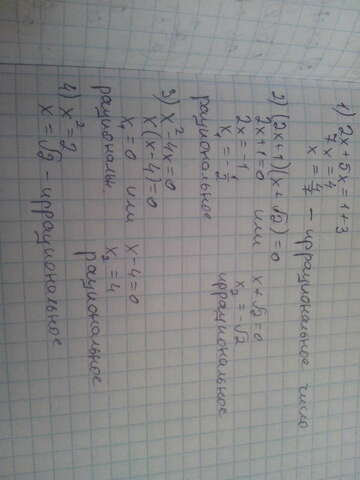 1) 2x + 5x = 1 + 3
7x = 4
x = 4/7 - иррациональное число
2) (2x+1)(x+√2) = 0
2x+1=0 или x+√2=0
2x=-1 x₂=-√2
x₁=-1/2 иррациональное
рациональное
3) x²-4x=0
x(x-4)=0
x₁=0 или x-4=0
рациональн. x₂=4
рациональное
4) x²=2
x=√2 - иррациональное